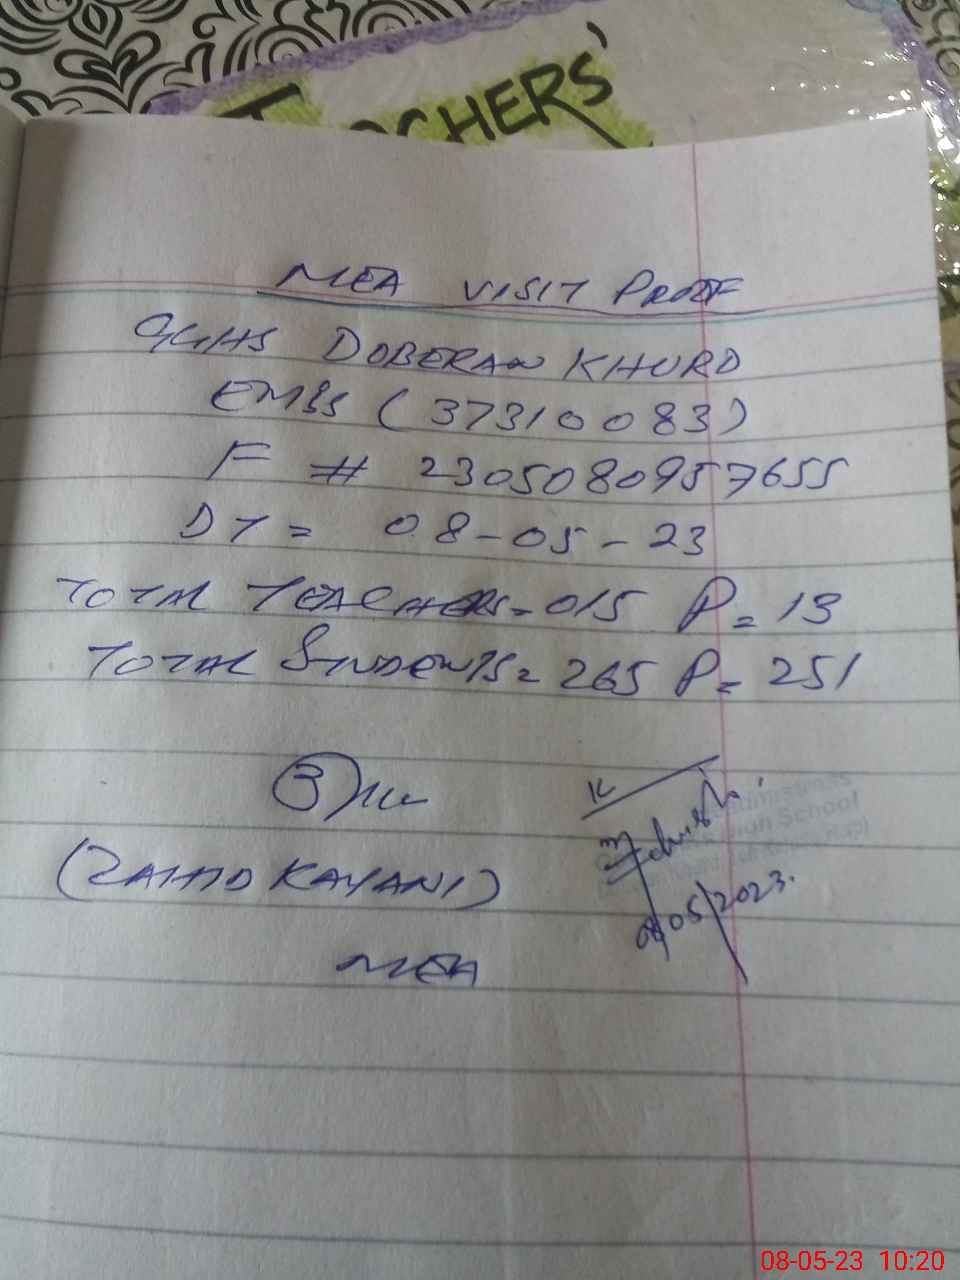 TEACHERS'
MEA VISIT PROOF
GGHS DOBERAN KHURD
EMIS (37310083)
F # 2305080957655
DT = 08-05-23
TOTAL TEACHERS = 015 P = 13
TOTAL STUDENTS = 265 P = 251
(ZAHID KAYANI)
MEA
High School
08/05/2023.
08-05-23 10:20